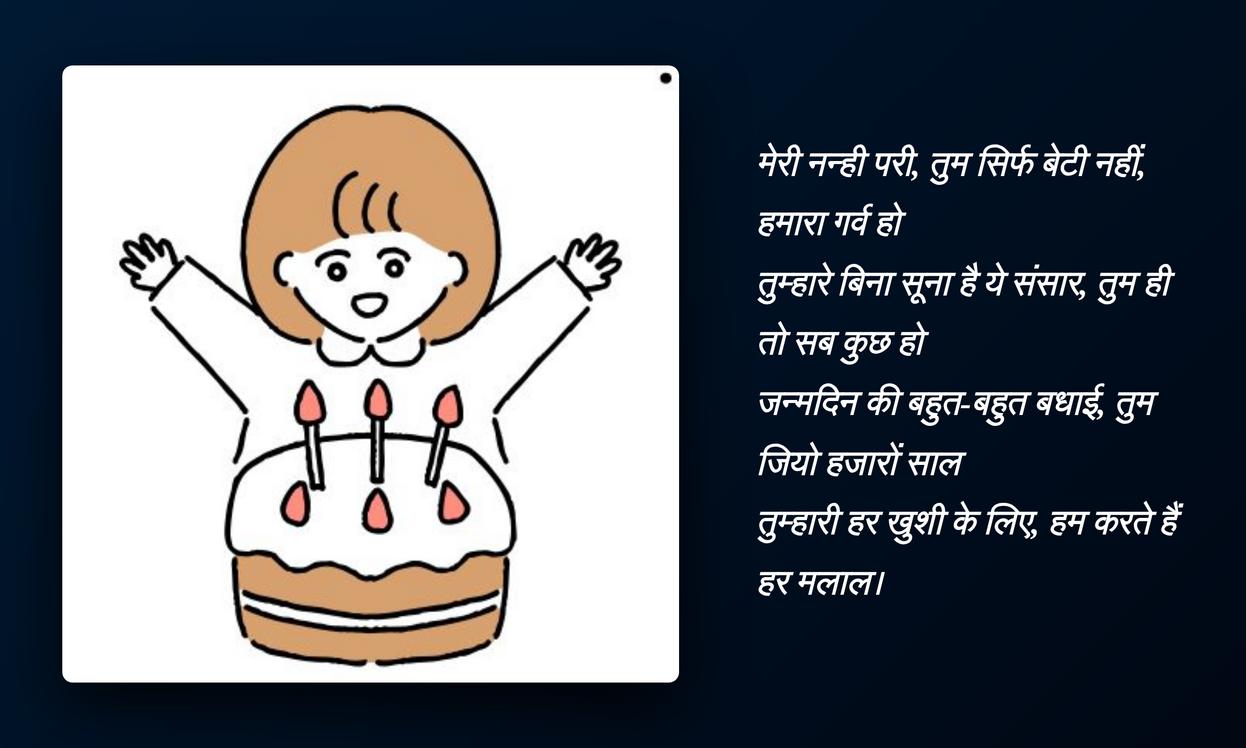 मेरी नन्ही परी, तुम सिर्फ बेटी नहीं,
हमारा गर्व हो
तुम्हारे बिना सूना है ये संसार, तुम ही
तो सब कुछ हो
जन्मदिन की बहुत-बहुत बधाई, तुम
जियो हजारों साल
तुम्हारी हर खुशी के लिए, हम करते हैं
हर मलाल।